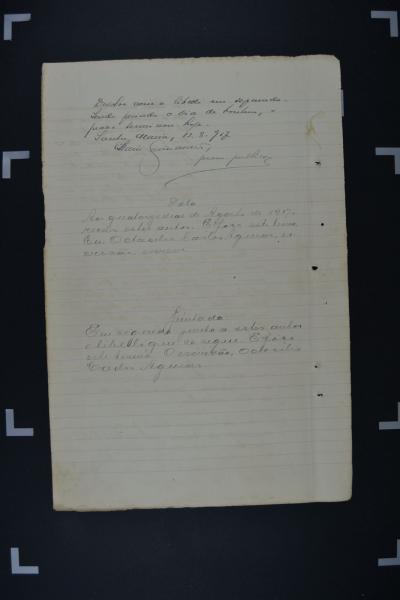 Devolvo com o libelo em separado.
Sendo feriado o dia de hontem, o
prazo terminou hoje.
Santa Maria, 11.8.917
prom. publico
Data
Aos quatorze dias de Agosto de 1917,
recebi estes autos. E faço este termo.
Eu Octacilio Carlos Aguiar, es-
crivão, escrevi
Juntada
Em seguida junto a estes autos
o libello que se segue. E faço
este termo. O escrivão, Octacilio
Carlos Aguiar